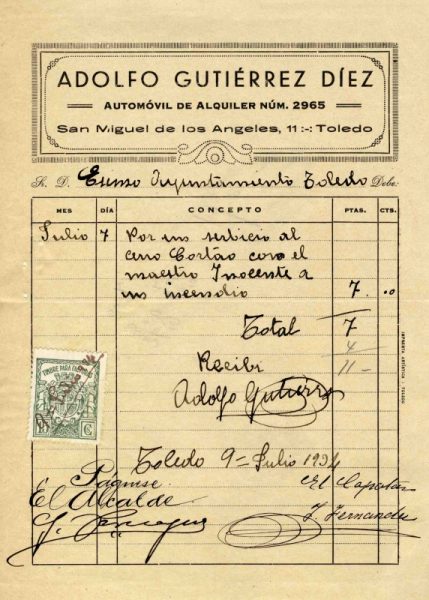 ADOLFO GUTIÉRREZ DÍEZ
AUTOMÓVIL DE ALQUILER NÚM. 2965
San Miguel de los Angeles, 11 :-: Toledo
Sr. D. Exmso Ayuntamiento Toledo Debe:
MES DÍA CONCEPTO PTAS. CTS.
Julio 7 Por un serbicio al
cerro Cortao con el
maestro Inocente a
un incendio 7 00
Total 7
4
Recibi 11-
Adolfo Gutierrez
TIMBRE PARA
C
Toledo 9 - Julio 1934
Páguese El Capatáz
El Alcalde
J. Fernandez
IMPRENTA TOLEDO